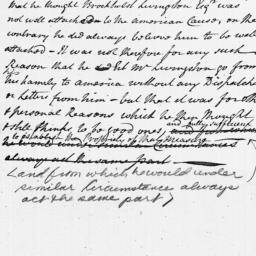 that he thought Brockholst Livingston Esqr was
not well attached to the American Cause, on the
contrary he did always believe him to be well
attached – It was not therefore for any such
Reason that he let Mr Livingston go from
his family to america without any Dispatches
or letters from him – but that it was for other
& personal Reasons which he then thought
& still thinks to be good ones, and fully sufficient
to establish the Propriety of that Measure
he would under similar Circumstances
always act the same part
(and from which he would under
similar Circumstance always
act the same part)